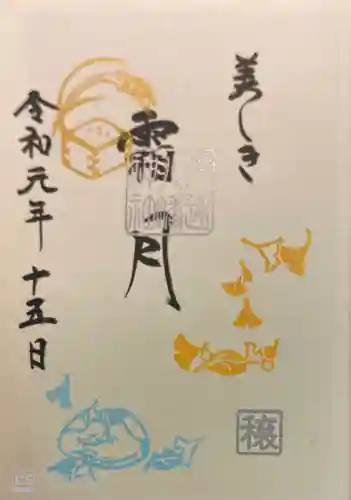 美しき
霜月
令和元年 十五日
穣